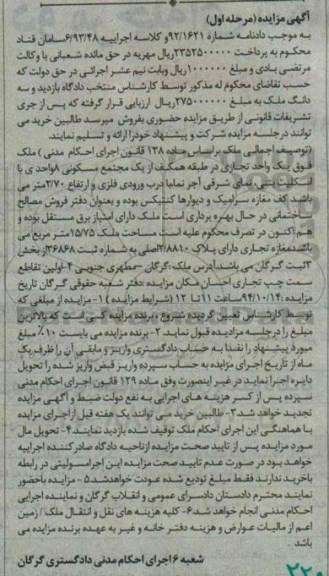 آگهی مزایده (مرحله اول)
به موجب دادنامه شماره ۹۲/۱۶۲۱ و کلاسه اجراییه ۶/۹۳/۴۸ سامان قناد
محکوم به پرداخت ۲۳۵۲۵۰۰۰۰۰ ریال مهریه در حق مائده شعبانی با وکالت
مرتضی بادی و مبلغ ۱۰۰۰۰۰۰۰ ریال بابت نیم عشر اجرائی در حق دولت که
حسب تقاضای محکوم له مذکور توسط کارشناس منتخب دادگاه بازدید و سه
دانگ ملک به مبلغ ۲۷۵۰۰۰۰۰۰ ریال ارزیابی قرار گرفته که پس از جری
تشریفات قانونی از طریق مزایده حضوری بفروش میرسد طالبین خرید می
توانند در جلسه مزایده شرکت و پیشنهاد خود را ارائه و تسلیم نمایند.
(توصیف اجمالی ملک براساس ماده ۱۳۸ قانون اجرای احکام مدنی) ملک
فوق یک واحد تجاری در طبقه همکف از یک مجتمع مسکونی ۸ واحدی با
اسکلت بتنی، نمای شرقی آجر نما با درب ورودی فلزی و ارتفاع ۲/۷۰ متر می
باشد کف مغازه سرامیک و دیوارها کنتیکس بوده و بعنوان دفتر فروش مصالح
ساختمانی در حال بهره برداری است ملک دارای امتیاز برق مستقل بوده و
هم اکنون در تصرف محکوم علیه است مساحت ملک ۱۵/۷۵ متر مربع می
باشد مغازه تجاری دارای پلاک ۲/۸۸۱۰ اصلی به شماره ثبت ۳۶۸۶۸ از بخش
۳ ثبت گرگان می باشد آدرس ملک: گرگان -مطهری جنوبی ۴- اولین تقاطع
سمت چپ تجاری احسان مکان مزایده دفتر شعبه حقوقی گرگان تاریخ
مزایده: ۹۴/۱۰/۱۴ ساعت ۱۱ تا ۱۲ (شرایط مزایده) ۱- مزایده از مبلغی که
توسط کارشناس تعیین گردیده شروع و برنده مزایده کسی است که بالاترین
مبلغ را در جلسه مزایده قبول نماید ۲- برنده مزایده می بایست ۱۰٪ مبلغ
مورد پیشنهاد را نقدا به حساب دادگستری واریز و مابقی آن را ظرف یک
ماه از تاریخ اجرای مزایده به حساب سپرده واریز قبض واریز شده را تحویل
دایره اجرا نماید در غیر اینصورت وفق ماده ۱۲۹ قانون اجرای احکام مدنی
سپرده پس از کسر هزینه های اجرایی به نفع دولت ضبط و آگهی مزایده
تجدید خواهد شد ۳- طالبین خرید می توانند یک هفته قبل از اجرای مزایده
با هماهنگی این اجرای احکام ملک توقیف شده بازدید نمایند. ۴- تحویل مال
مورد مزایده پس از تایید صحت مزایده از ناحیه دادگاه صادر کننده اجراییه
خواهد بود در صورت عدم تایید صحت مزایده این اجرا مسولیتی در رابطه
با خرید ندارند فقط مبلغ تودیع شده عودت خواهد شد ۵- مزایده با حضور
نماینده محترم دادستان دادسرای عمومی و انقلاب گرگان و نماینده اجرایی
احکام مدنی انجام خواهد شد ۶- کلیه هزینه های نقل و انتقال ملک / زمین
اعم از مالیات عوارض و هزینه دفتر خانه و غیر به عهده برنده مزایده می
باشد.
شعبه ۶ اجرای احکام مدنی دادگستری گرگان
۲۲۰